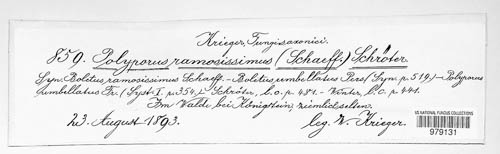 Krieger, Fungi saxonici.
859. Polyporus ramosissimus (Schaeff.) Schröter.
Syn: Boletus ramosissimus Schaeff. - Boletus umbellatus Pers (Syn. p. 519) - Polyporus
umbellatus Fr. (Syst. I. p. 354.) Schröter, l. c. p. 481. - Winter, l. c. p. 441.
Im Walde bei Königstein, ziemlich selten.
23. August 1893.
leg. W. Krieger.
US NATIONAL FUNGUS COLLECTIONS
979131